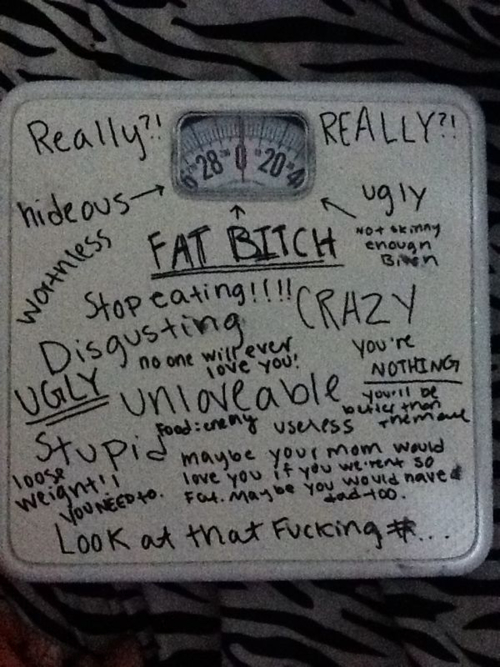 Really?!
REALLY?!
28 0 20
hideous
ugly
worthless
Not skinny
enough
Bitch
FAT BITCH
Stop eating!!!!
CRAZY
Disgusting
no one will ever
love you!
you're
NOTHING
UGLY
unloveable
you'll be
better than
them all
Food: enemy
useless
Stupid
maybe your mom would
love you if you we'rent so
Fat. Maybe you would have a
dad too.
loose
weight!!
YOU NEED to.
Look at that Fucking #...